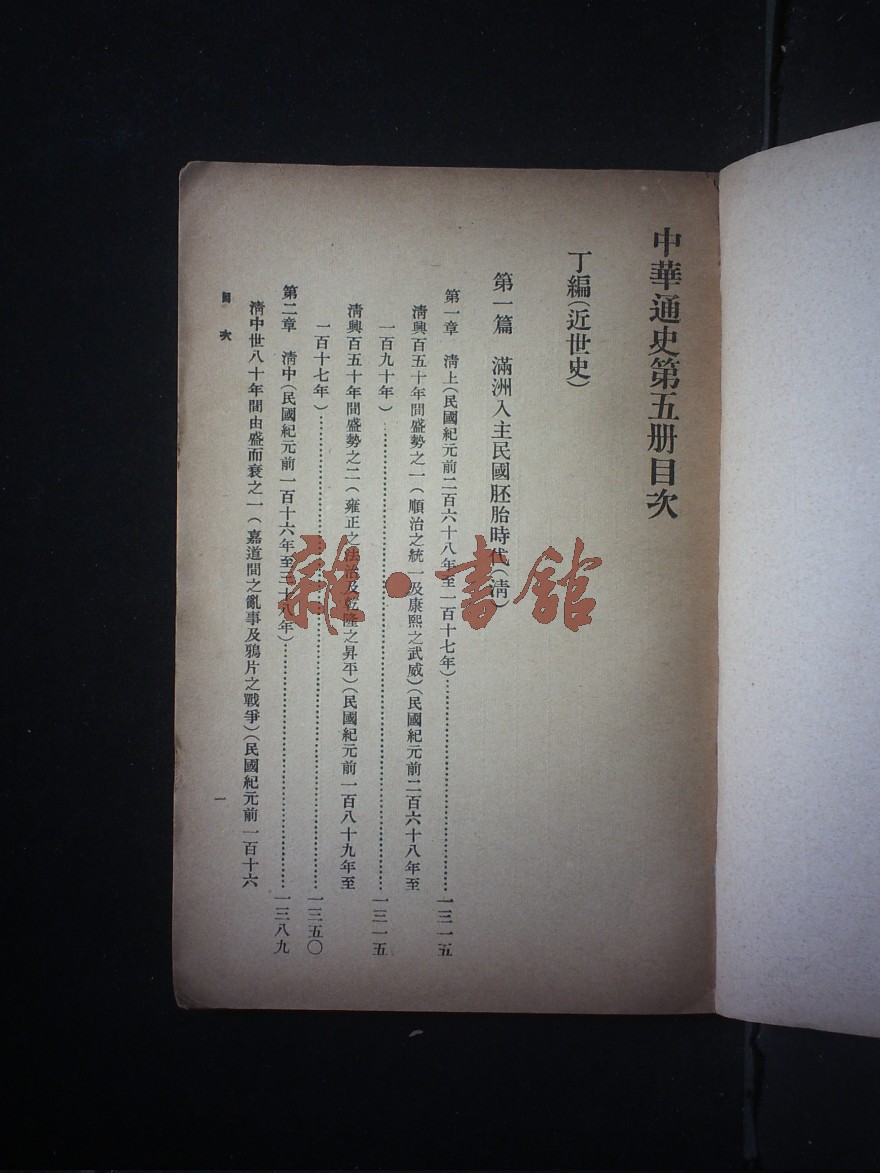 中華通史第五册目次
丁編(近世史)
第一篇 滿洲入主民國胚胎時代(淸)
第一章 淸上(民國紀元前二百六十八年至一百十七年)……一三一五
淸興百五十年間盛勢之一(順治之統一及康熙之武威)(民國紀元前二百六十八年至
一百九十年)……一三一五
淸興百五十年間盛勢之二(雍正之法治及乾隆之昇平)(民國紀元前一百八十九年至
一百十七年)……一三五〇
第二章 淸中(民國紀元前一百十六年至三十八年)……一三八九
淸中世八十年間由盛而衰之一(嘉道間之亂事及鴉片之戰爭)(民國紀元前一百十六
目次
一
雜·書館